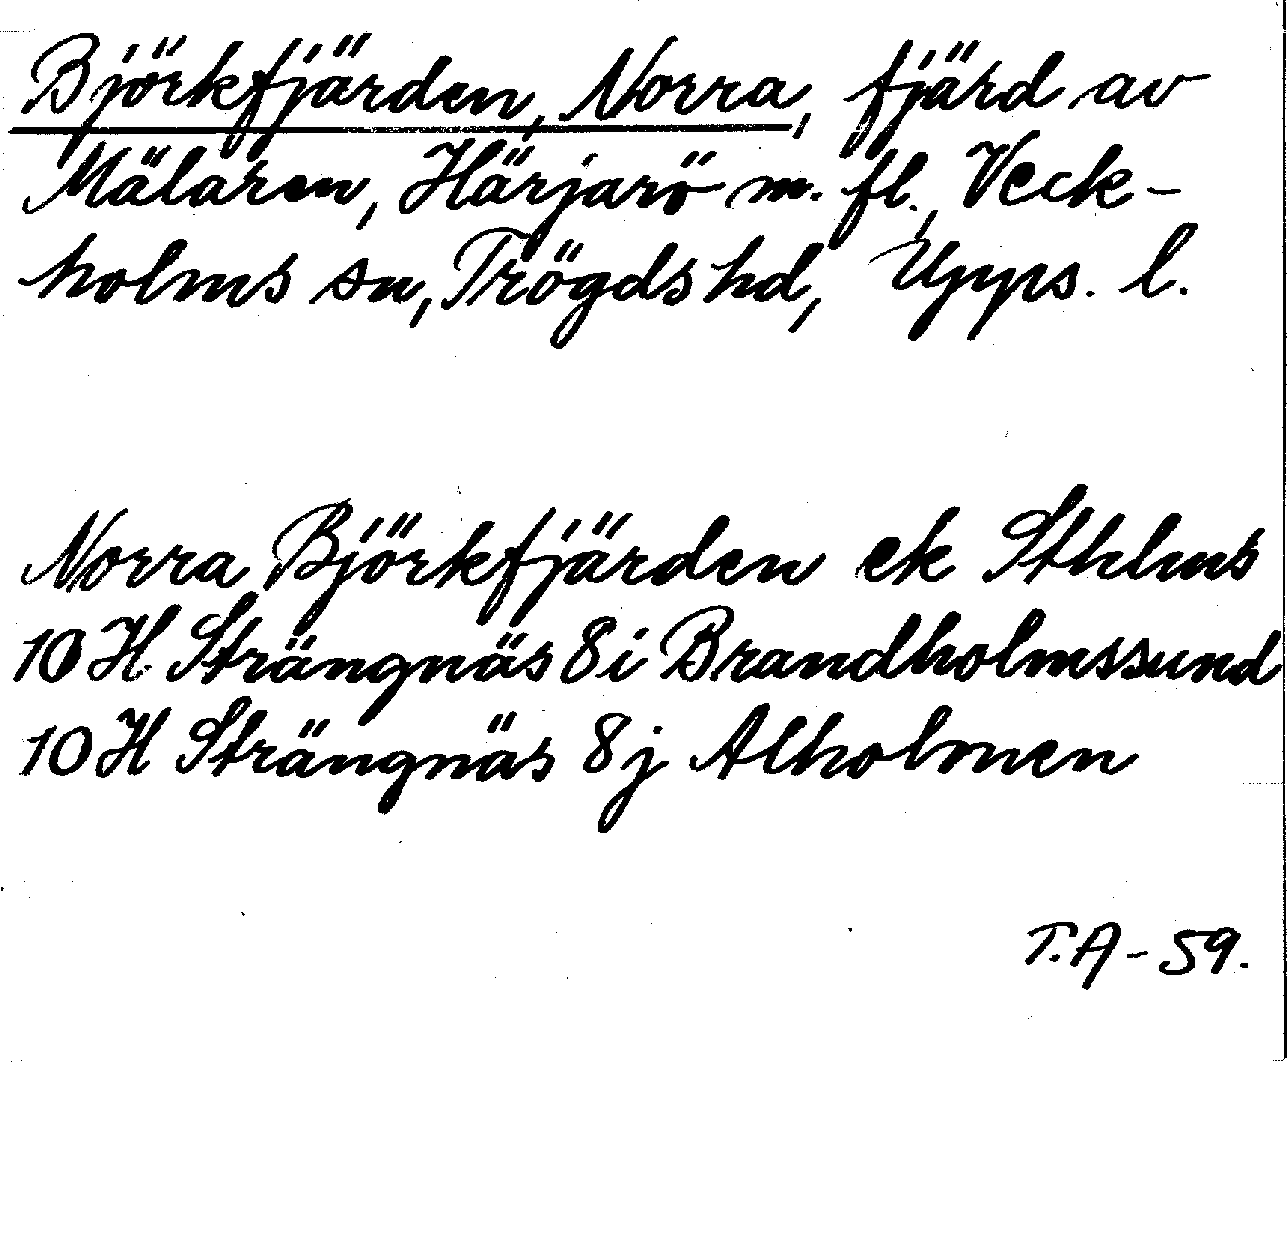 Björkfjärden, Norra, fjärd av
Mälaren, Härjarö m. fl., Veck-
holms sn, Trögds hd, Upps. l.
Norra Björkfjärden ek Sthlms
10 H Strängnäs 8 i Brandholmssund
10 H Strängnäs 8 j Alholmen
T.A - 59.